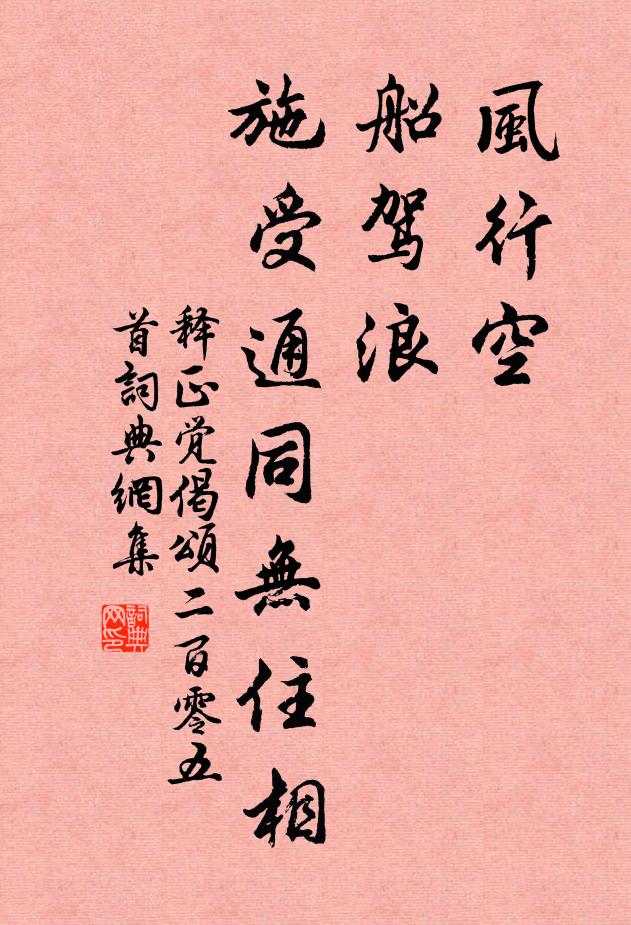 風行空
船駕浪
施受通同無住相
释正覚偈頌二百零五
首詞典網集
詞典网印